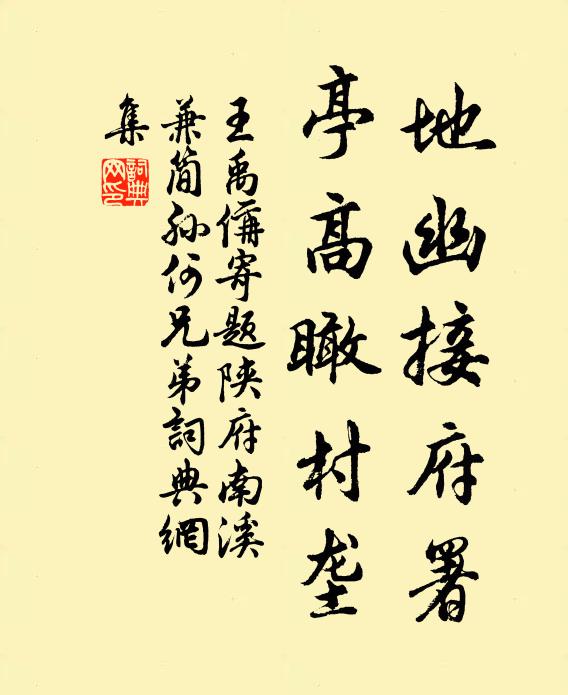 地幽接府署
亭高瞰村垄
王禹偁寄题陕府南溪
兼简孙何兄弟詞典網
集
詞典网印